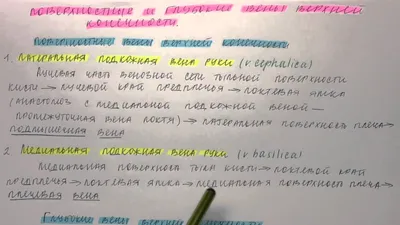 ПОВЕРХНОСТНЫЕ И ГЛУБОКИЕ ВЕНЫ ВЕРХНЕЙ
КОНЕЧНОСТИ.
ПОВЕРХНОСТНЫЕ ВЕНЫ ВЕРХНЕЙ КОНЕЧНОСТИ:
1. ЛАТЕРАЛЬНАЯ ПОДКОЖНАЯ ВЕНА РУКИ (v cephalica)
ЛУЧЕВАЯ ЧАСТЬ ВЕНОЗНОЙ СЕТИ ТЫЛЬНОЙ ПОВЕРХНОСТИ
КИСТИ → ЛУЧЕВОЙ КРАЙ ПРЕДПЛЕЧЬЯ → ЛОКТЕВАЯ ЯМКА
(АНАСТОМОЗ С МЕДИАЛЬНОЙ ПОДКОЖНОЙ ВЕНОЙ –
ПРОМЕЖУТОЧНАЯ ВЕНА ЛОКТЯ) → ЛАТЕРАЛЬНАЯ ПОВЕРХНОСТЬ ПЛЕЧА →
ПОДМЫШЕЧНАЯ ВЕНА
2. МЕДИАЛЬНАЯ ПОДКОЖНАЯ ВЕНА РУКИ (v basilica)
МЕДИАЛЬНАЯ ПОВЕРХНОСТЬ ТЫЛА КИСТИ → ЛОКТЕВОЙ КРАЙ
ПРЕДПЛЕЧЬЯ → ЛОКТЕВАЯ ЯМКА → МЕДИАЛЬНАЯ ПОВЕРХНОСТЬ ПЛЕЧА →
ПЛЕЧЕВАЯ ВЕНА
ГЛУБОКИЕ ВЕНЫ ВЕРХНЕЙ